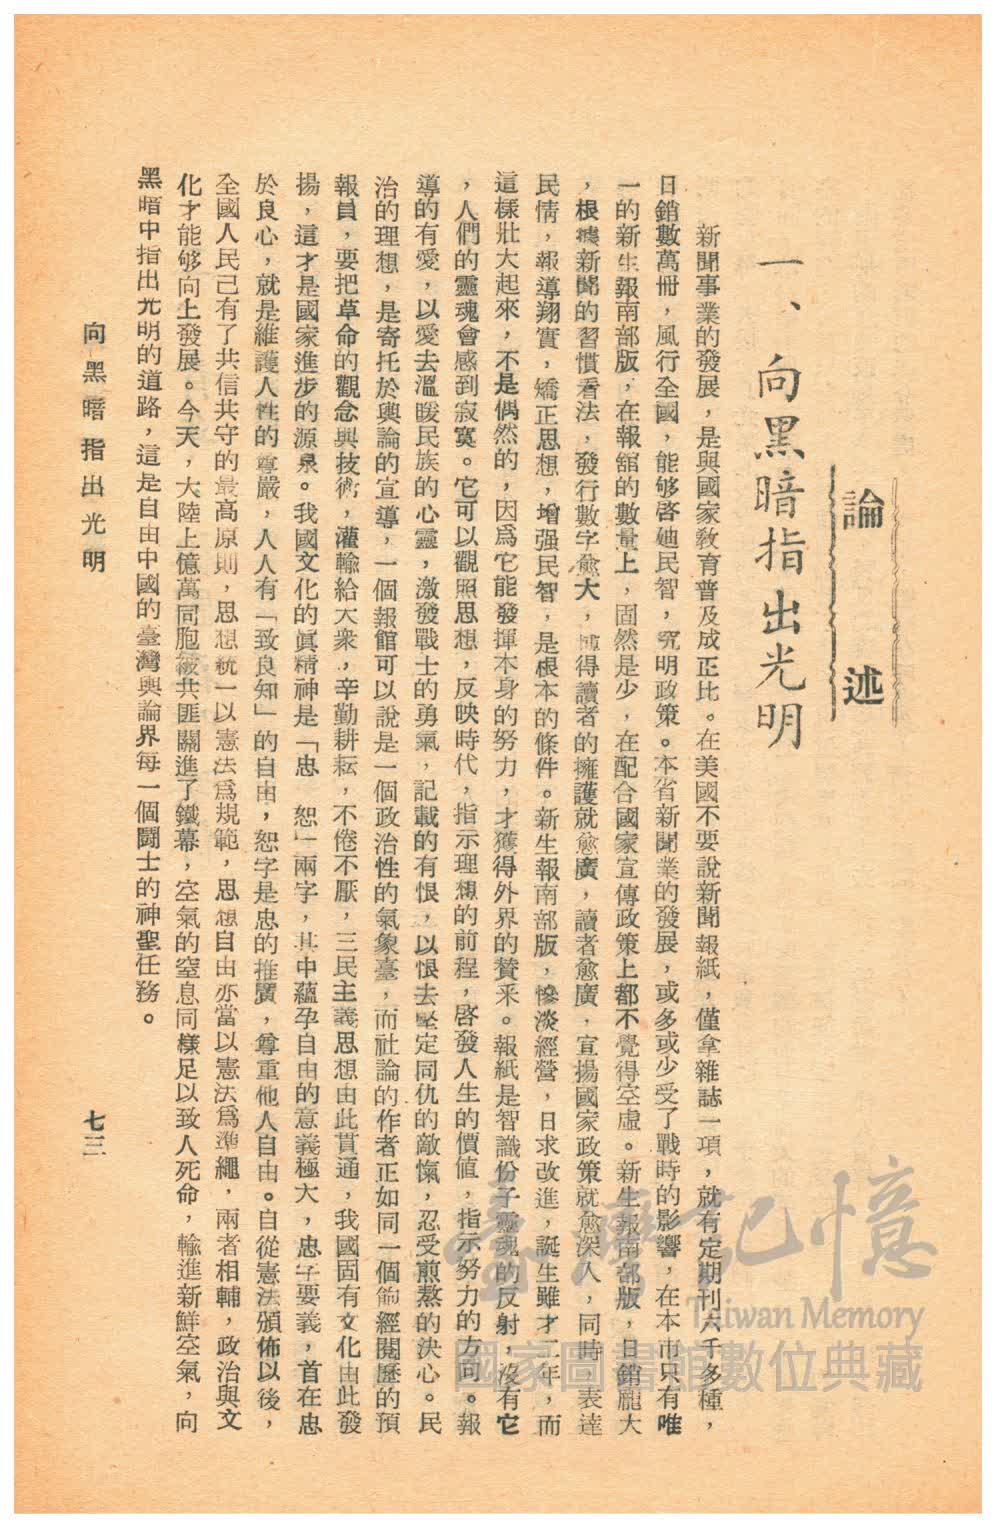 論　述
一、向黑暗指出光明
新聞事業的發展，是與國家敎育普及成正比。在美國不要說新聞報紙，僅拿雜誌一項，就有定期刊六千多種，
日銷數萬冊，風行全國，能够啓廸民智，究明政策。本省新聞業的發展，或多或少受了戰時的影響，在本市只有唯
一的新生報南部版，在報舘的數量上，固然是少，在配合國家宣傳政策上都不覺得空虛。新生報南部版，日銷龐大
，根據新聞的習慣看法，發行數字愈大，博得讀者的擁護就愈廣，讀者愈廣，宣揚國家政策就愈深入，同時，表達
民情，報導翔實，矯正思想，增强民智，是根本的條件。新生報南部版，慘淡經營，日求改進，誕生雖才二年，而
這樣壯大起來，不是偶然的，因爲它能發揮本身的努力，才獲得外界的贊釆。報紙是智識份子靈魂的反射，沒有它
，人們的靈魂會感到寂寞。它可以觀照思想，反映時代，指示理想的前程，啓發人生的價值，指示努力的方向。報
導的有愛，以愛去溫暖民族的心靈，激發戰士的勇氣，記載的有恨，以恨去堅定同仇的敵愾，忍受煎熬的決心。民
治的理想，是寄托於輿論的宣導，一個報館可以說是一個政治性的氣象臺，而社論的作者正如同一個飽經閱歷的預
報員，要把革命的觀念與技術，灌輸給大衆，辛勤耕耘，不倦不厭，三民主義思想由此貫通，我國固有文化由此發
揚，這才是國家進步的源泉。我國文化的眞精神是「忠　恕」兩字，其中蘊孕自由的意義極大，忠字要義，首在忠
於良心，就是維護人性的尊嚴，人人有「致良知」的自由，恕字是忠的推廣，尊重他人自由。自從憲法頒佈以後，
全國人民已有了共信共守的最高原則，思想統一以憲法爲規範，思想自由亦當以憲法爲準繩，兩者相輔，政治與文
化才能够向上發展。今天，大陸上億萬同胞被共匪關進了鐵幕，空氣的窒息同樣足以致人死命，輸進新鮮空氣，向
黑暗中指出光明的道路，這是自由中國的臺灣輿論界每一個鬪士的神聖任務。
向黑暗指出光明　七三
臺灣記憶
Taiwan Memory
國家圖書館數位典藏